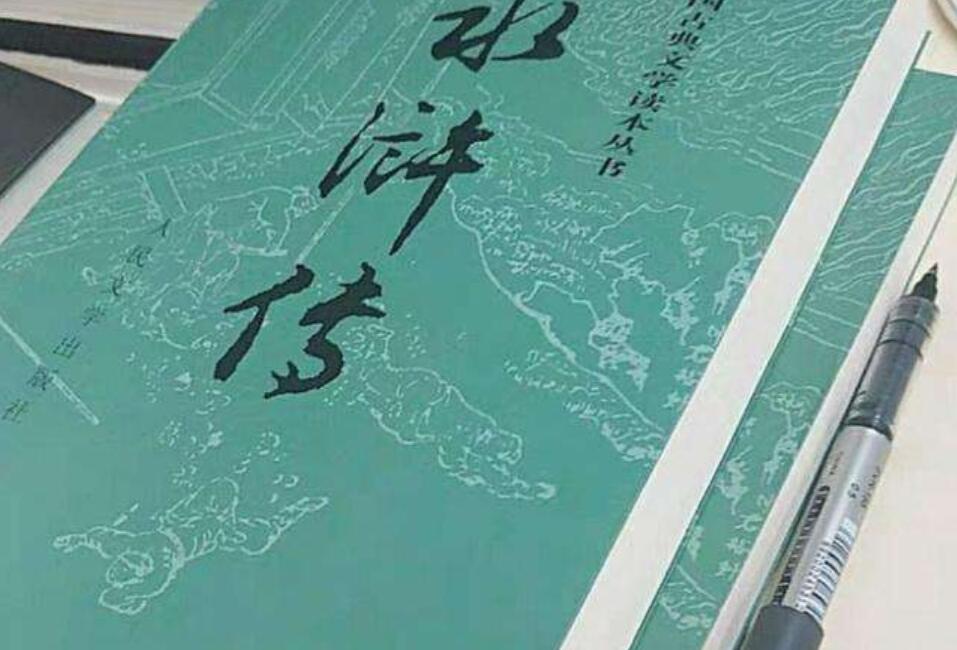 水浒传
国古典文学读本丛书
人民文学出版社
0.5